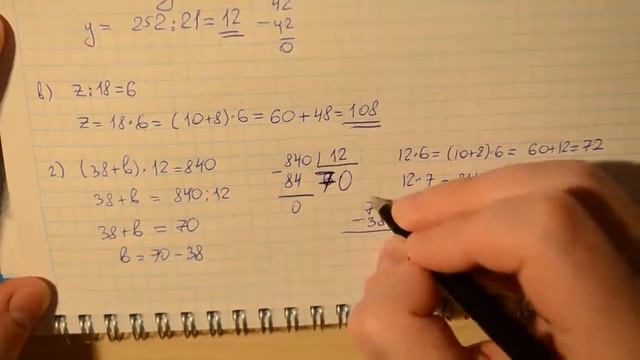 42
y = 252 : 21 = 12 - 42
0
в) z : 18 = 6
z = 18 · 6 = (10+8) · 6 = 60 + 48 = 108
г) (38+в) · 12 = 840
38+в = 840 : 12
38+в = 70
в = 70 - 38
- 840 | 12
84 70
0
12 · 6 = (10+2) · 6 = 60+12 = 72
12 · 7 =
7
- 38